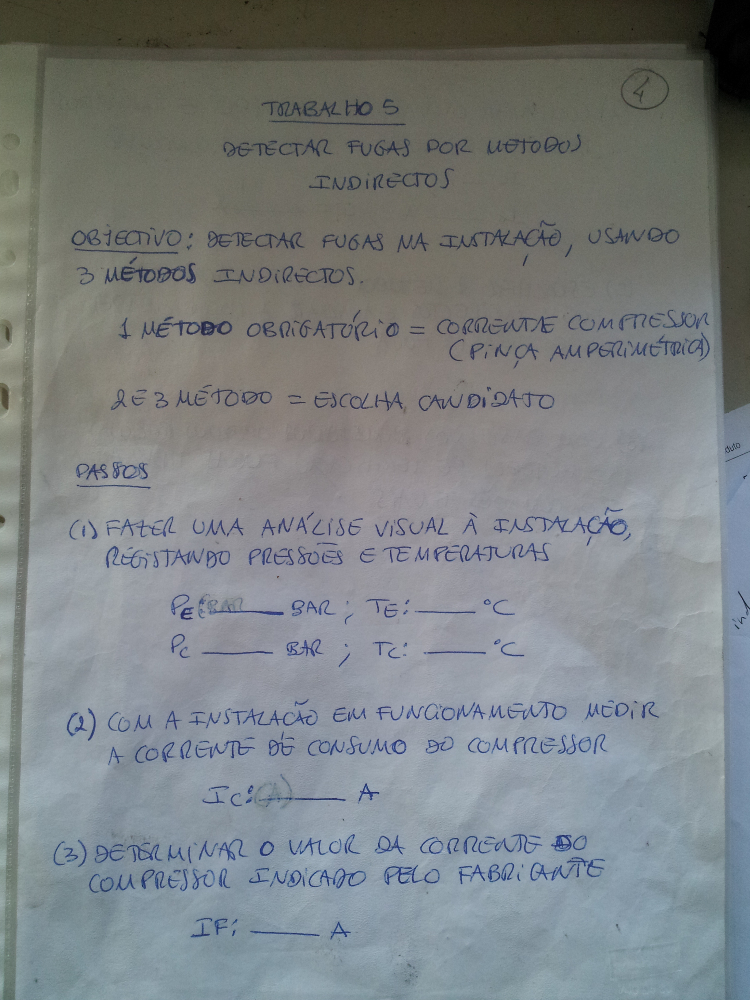 4
TRABALHO 5
DETECTAR FUGAS POR METODOS
INDIRECTOS
OBJECTIVO: DETECTAR FUGAS NA INSTALAÇÃO, USANDO
3 MÉTODOS INDIRECTOS.
1 MÉTODO OBRIGATÓRIO = CORRENTE COMPRESSOR
(PINÇA AMPERIMÉTRICA)
2 E 3 MÉTODO = ESCOLHA CANDIDATO
PASSOS
(1) FAZER UMA ANÁLISE VISUAL À INSTALAÇÃO,
REGISTANDO PRESSÕES E TEMPERATURAS
PE: ____ BAR ; TE: ____ °C
PC ____ BAR ; TC: ____ °C
(2) COM A INSTALAÇÃO EM FUNCIONAMENTO MEDIR
A CORRENTE DE CONSUMO DO COMPRESSOR
IC: ____ A
(3) DETERMINAR O VALOR DA CORRENTE DO
COMPRESSOR INDICADO PELO FABRICANTE
IF: ____ A